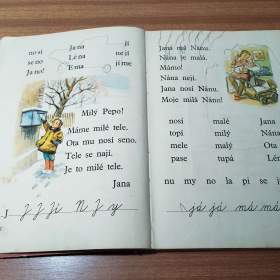 no si Ja na jí
se no Lé na ne jí
Ja no! E ma jí me
Milý Pepo!
Máme milé tele.
Ota mu nosí seno.
Tele se nají.
Je to milé tele.
Jana
J J ji N J y
Jana má Nánu.
Nána je malá.
Mámo!
Nána nejí.
Jana nosí Nánu.
Moje milá Náno!
nosí malé Jana
topí milý Nána
mele malý Ota
pase tupá
nu my no la pi se
já já má má